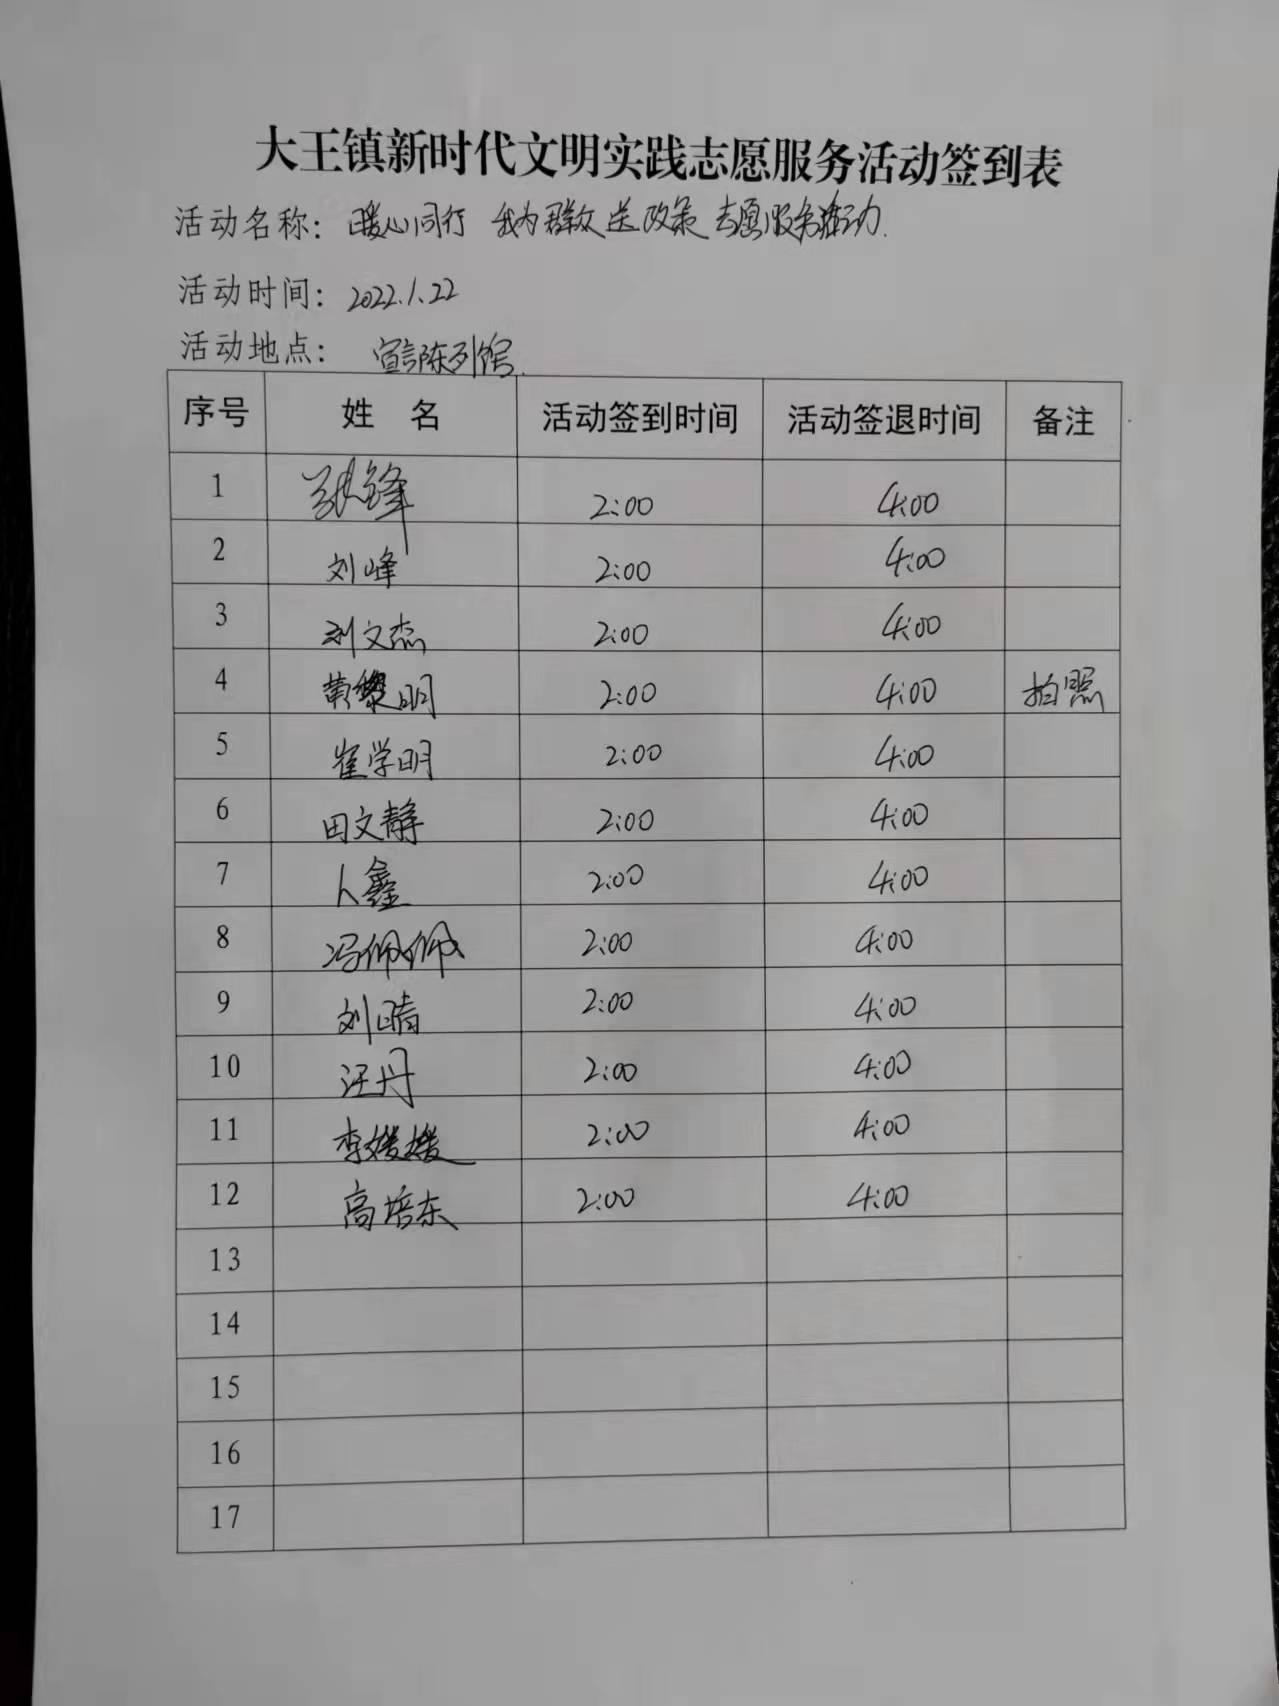 大王镇新时代文明实践志愿服务活动签到表
活动名称：暖心同行 我为群众送政策志愿服务活动.
活动时间：2022.1.22
活动地点：宣言陈列馆.
序号 姓 名 活动签到时间 活动签退时间 备注
1 张锋 2:00 4:00
2 刘峰 2:00 4:00
3 刘文杰 2:00 4:00
4 黄黎明 2:00 4:00 拍照
5 崔学明 2:00 4:00
6 田文静 2:00 4:00
7 卜鑫 2:00 4:00
8 冯佩佩 2:00 4:00
9 刘晴 2:00 4:00
10 汪丹 2:00 4:00
11 李媛媛 2:00 4:00
12 高培东 2:00 4:00
13
14
15
16
17